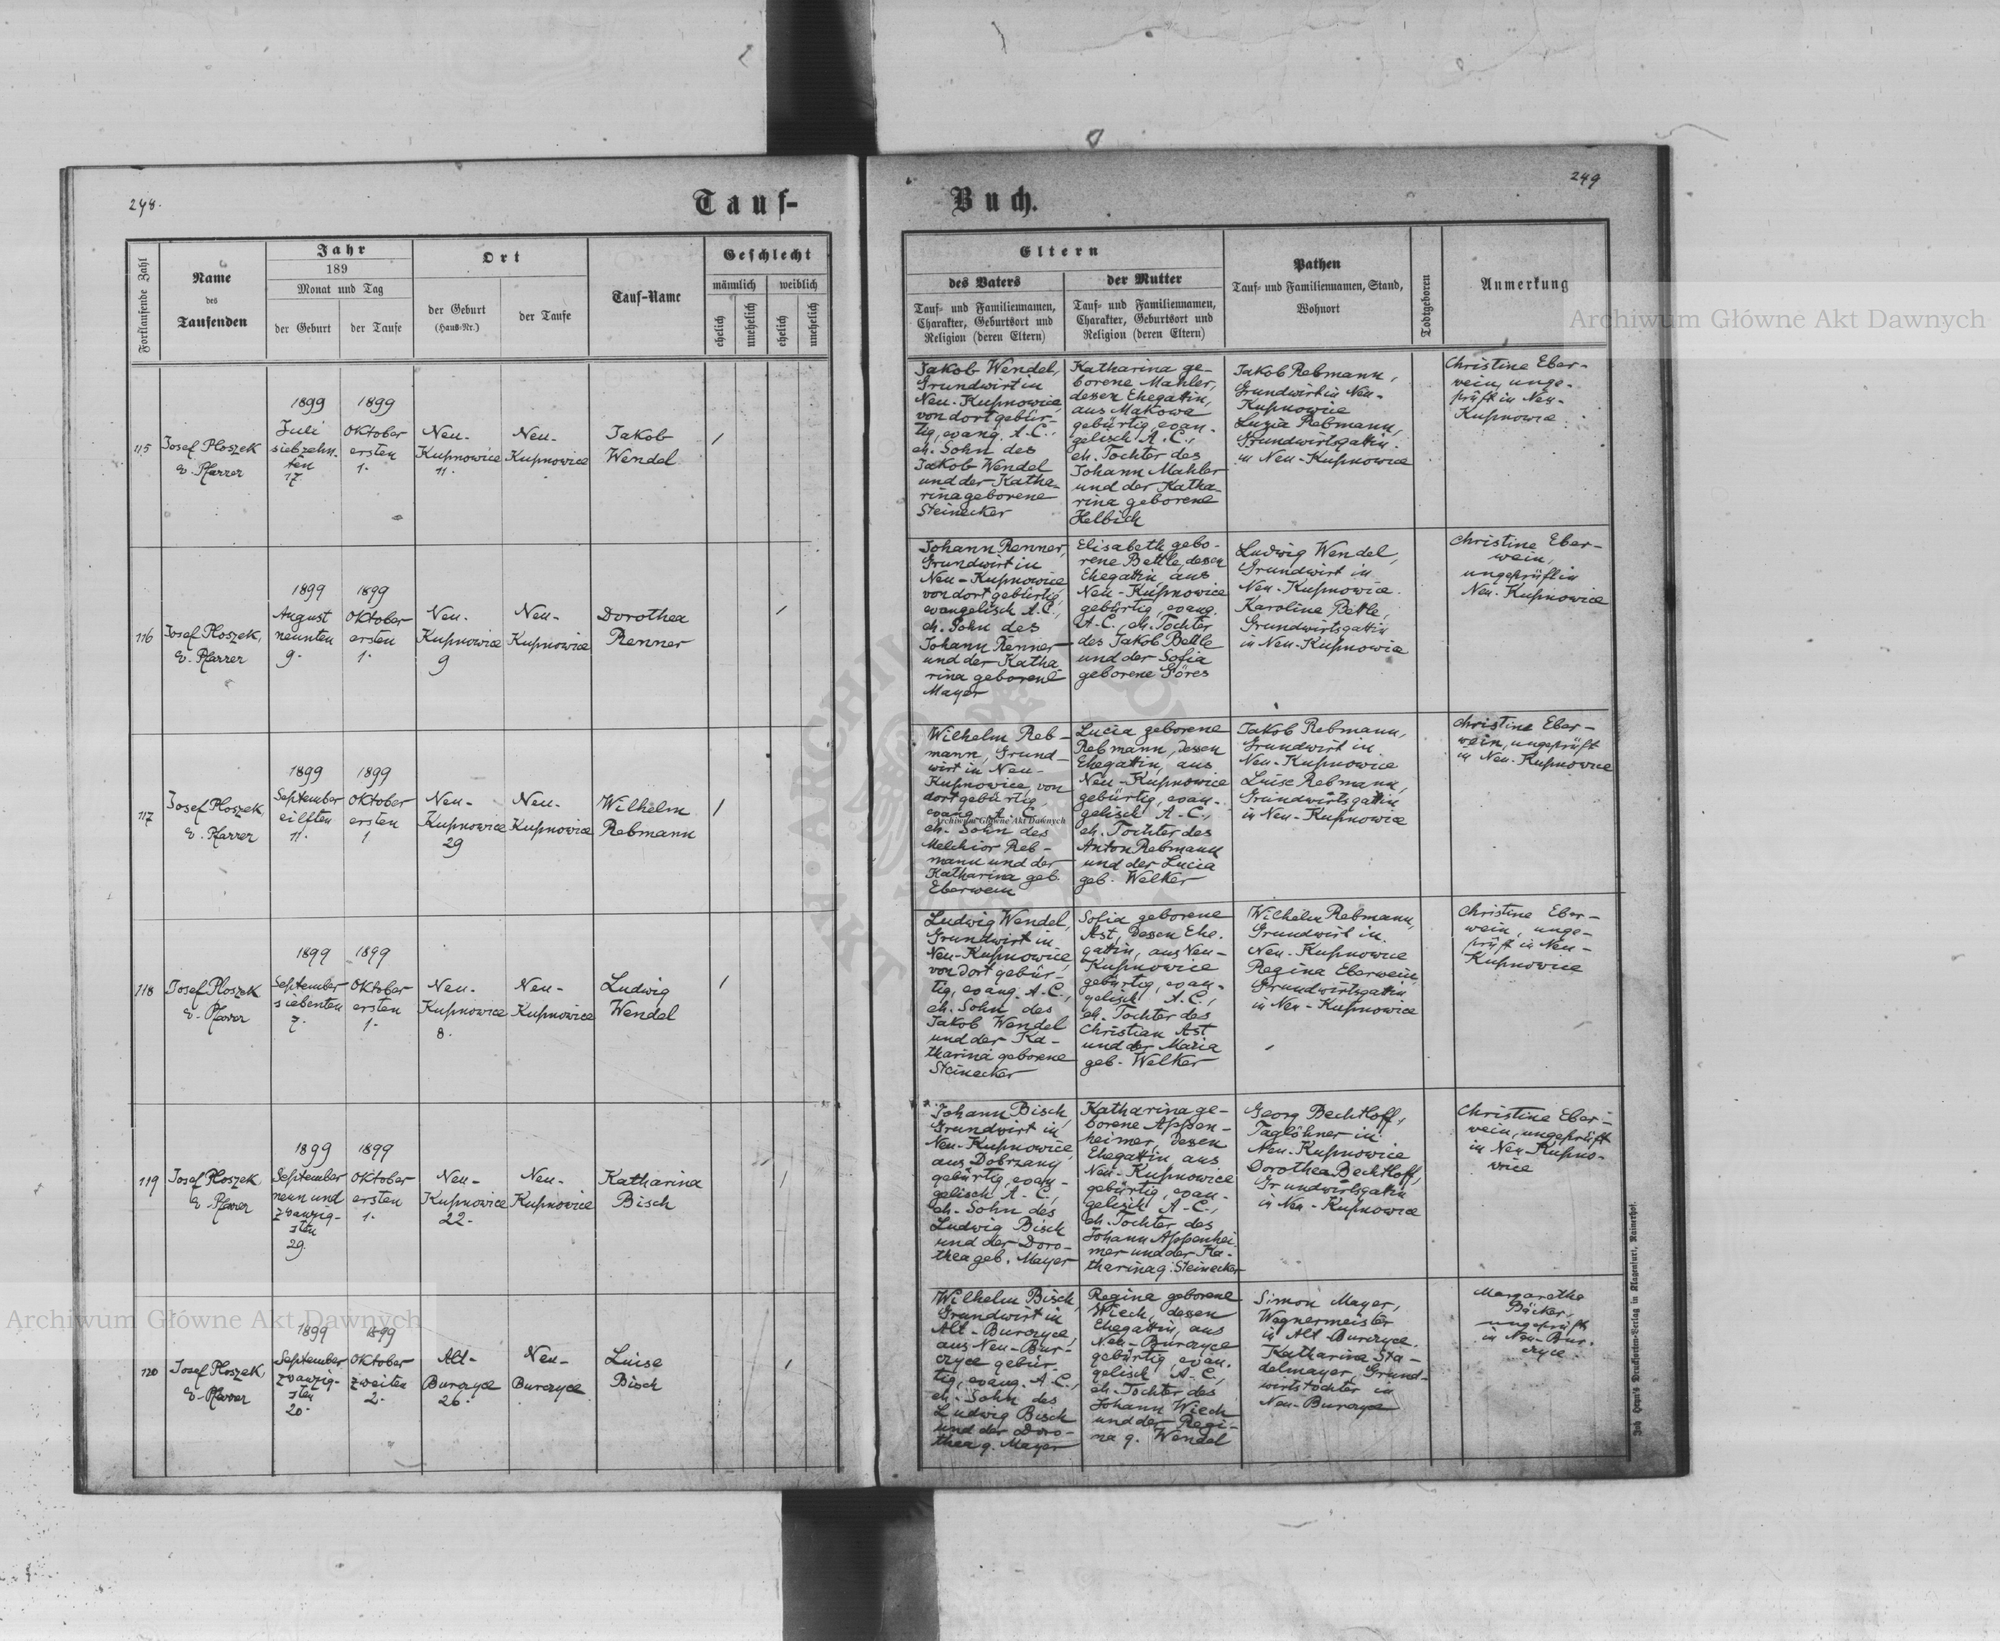 248.
Tauf-
Fortlaufende Zahl
Name
des
Taufenden
Jahr
189
Monat und Tag
der Geburt
der Taufe
Ort
der Geburt
(Haus-Nr.)
der Taufe
Tauf-Name
Geschlecht
männlich
weiblich
ehelich
unehelich
ehelich
unehelich
115
Josef Ploszek
e. Pfarrer
1899
Juli
siebzehn-
ten
17
1899
Oktober
ersten
1.
Neu-
Kupnowice
11.
Neu-
Kupnowice
Jakob
Wendel
116
Josef Ploszek,
e. Pfarrer
1899
August
neunten
9.
1899
Oktober
ersten
1.
Neu-
Kupnowice
9
Neu-
Kupnowice
Dorothea
Renner
117
Josef Ploszek,
e. Pfarrer
1899
September
eilften
11.
1899
Oktober
ersten
1
Neu-
Kupnowice
29
Neu-
Kupnowice
Wilhelm
Rebmann
118
Josef Ploszek
e. Pfarrer
1899
September
siebenten
7.
1899
Oktober
ersten
1.
Neu-
Kupnowice
8.
Neu-
Kupnowice
Ludwig
Wendel
119
Josef Ploszek,
e. Pfarrer
1899
September
neun und
zwanzig-
sten
29.
1899
Oktober
ersten
1.
Neu-
Kupnowice
22.
Neu-
Kupnowice
Katharina
Bisch
120
Josef Ploszek,
e. Pfarrer
1899
September
zwanzig-
sten
20.
1899
Oktober
zweiten
2.
Alt-
Burczyce
26.
Neu-
Burczyce
Luise
Bisch
249
Buch.
Eltern
des Vaters
Tauf- und Familiennamen,
Charakter, Geburtsort und
Religion (deren Eltern)
der Mutter
Tauf- und Familiennamen,
Charakter, Geburtsort und
Religion (deren Eltern)
Pathen
Tauf- und Familiennamen, Stand,
Wohnort
Todtgeboren
Anmerkung
Jakob Wendel,
Grundwirt in
Neu-Kupnowice,
von dort gebür-
tig, evang. A.C.,
eh. Sohn des
Jakob Wendel
und der Katha-
rina geborene
Steinecker
Katharina ge-
borene Mahler,
dessen Ehegattin,
aus Makowa
gebürtig, evan-
gelisch A.C.,
eh. Tochter des
Johann Mahler
und der Katha-
rina geborene
Helbich
Jakob Rebmann,
Grundwirt in Neu-
Kupnowice
Luzia Rebmann,
Grundwirtsgattin
in Neu-Kupnowice
Christine Eber-
wein, unge-
prüft in Neu-
Kupnowice
Johann Renner,
Grundwirt in
Neu-Kupnowice
von dort gebürtig,
evangelisch A.C.,
eh. Sohn des
Johann Renner
und der Katha-
rina geborene
Mayer
Elisabeth gebo-
rene Bettle, dessen
Ehegattin, aus
Neu-Kupnowice
gebürtig, evang.
A.C., eh. Tochter
des Jakob Bettle
und der Sofia
geborene Göres
Ludwig Wendel,
Grundwirt in
Neu-Kupnowice.
Karoline Bettle,
Grundwirtsgattin
in Neu-Kupnowice
Christine Eber-
wein,
ungeprüft in
Neu-Kupnowice
Wilhelm Reb-
mann, Grund-
wirt in Neu-
Kupnowice, von
dort gebürtig,
evang. A.C.,
eh. Sohn des
Melchior Reb-
mann und der
Katharina geb.
Eberwein
Lucia geborene
Rebmann, dessen
Ehegattin, aus
Neu-Kupnowice
gebürtig, evan-
gelisch A.C.,
eh. Tochter des
Anton Rebmann
und der Lucia
geb. Welker
Jakob Rebmann,
Grundwirt in
Neu-Kupnowice
Luise Rebmann,
Grundwirtsgattin
in Neu-Kupnowice
Christine Eber-
wein, ungeprüft
in Neu-Kupnowice
Ludwig Wendel,
Grundwirt in
Neu-Kupnowice,
von dort gebür-
tig, evang. A.C.,
eh. Sohn des
Jakob Wendel
und der Ka-
tharina geborene
Steinecker
Sofia geborene
Ast, dessen Ehe-
gattin, aus Neu-
Kupnowice
gebürtig, evan-
gelisch A.C.,
eh. Tochter des
Christian Ast
und der Maria
geb. Welker
Wilhelm Rebmann,
Grundwirt in
Neu-Kupnowice
Regina Eberwein,
Grundwirtsgattin
in Neu-Kupnowice
Christine Eber-
wein, unge-
prüft in Neu-
Kupnowice
Johann Bisch,
Grundwirt in
Neu-Kupnowice,
aus Dobrzany
gebürtig, evan-
gelisch A.C.,
eh. Sohn des
Ludwig Bisch
und der Doro-
thea geb. Mayer
Katharina ge-
borene Appen-
heimer, dessen
Ehegattin, aus
Neu-Kupnowice
gebürtig, evan-
gelisch A.C.,
eh. Tochter des
Johann Appenhei-
mer und der Ka-
tharina g. Steinecker
Georg Bechtloff,
Taglöhner in
Neu-Kupnowice
Dorothea Bechtloff,
Grundwirtsgattin
in Neu-Kupnowice
Christine Eber-
wein, ungeprüft
in Neu-Kupno-
wice
Wilhelm Bisch,
Grundwirt in
Alt-Burczyce,
aus Neu-Bur-
czyce gebür-
tig, evang. A.C.,
eh. Sohn des
Ludwig Bisch
und der Doro-
thea g. Mayer
Regina geborene
Wiech, dessen
Ehegattin, aus
Neu-Burczyce
gebürtig, evan-
gelisch A.C.,
eh. Tochter des
Johann Wiech
und der Regi-
na g. Wendel
Simon Mayer,
Wagnermeister
in Alt-Burczyce.
Katharina Sta-
delmayer, Grund-
wirtstochter in
Neu-Burczyce
Margarethe
Bäcker,
ungeprüft
in Neu-Bur-
czyce.
Archiwum Główne Akt Dawnych
Archiwum Główne Akt Dawnych
Archiwum Główne Akt Dawnych